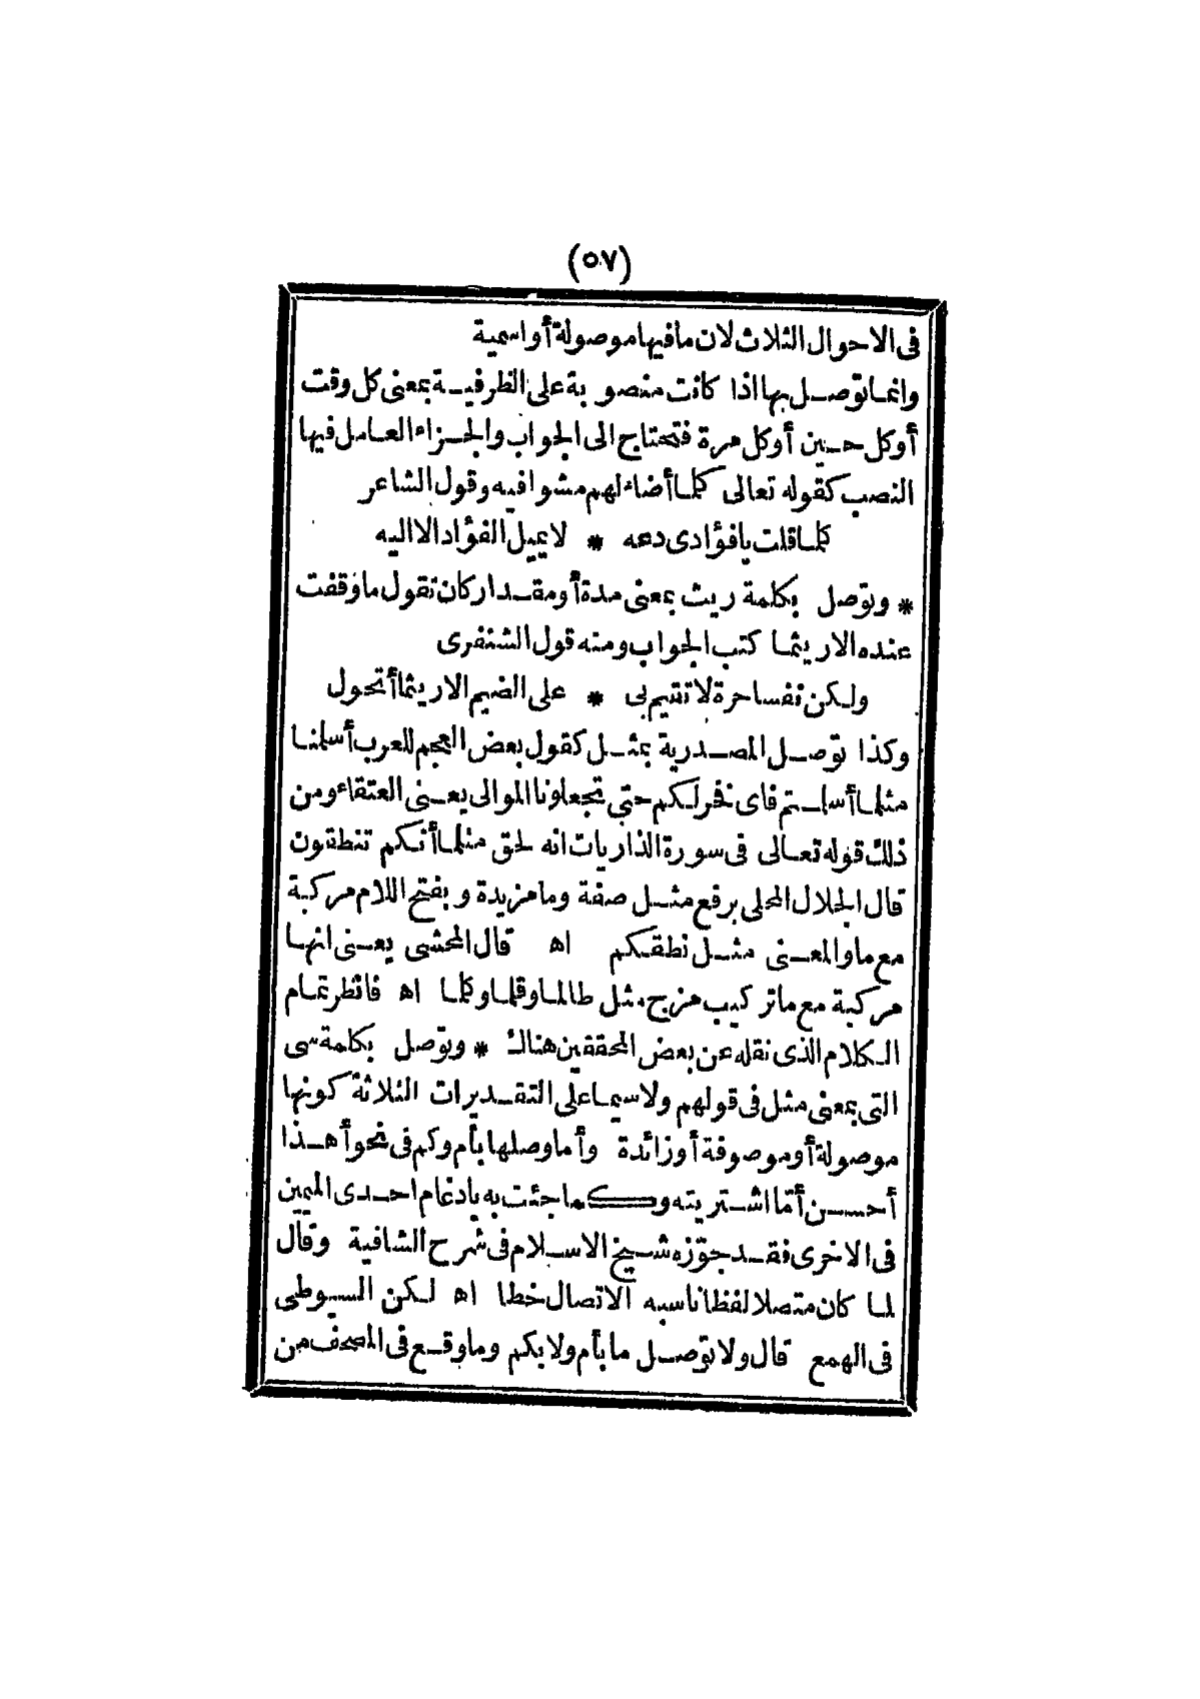 (٥٧)
فى الاحوال الثلاث لان ما فيها موصولة أو اسمية
وانما توصل بها اذا كانت منصوبة على الظرفية بمعنى كل وقت
أو كل حين أو كل مرة فتحتاج الى الجواب والجزاء العامل فيها
النصب كقوله تعالى كلما أضاء لهم مشوا فيه وقول الشاعر
كلما قلت يا فؤادى دعه * لا يميل الفؤاد الا اليه
* وتوصل بكلمة ريث بمعنى مدة أو مقدار كان تقول ما وقفت
عنده الا ريثما كتب الجواب ومنه قول الشنفرى
ولكن نفسا حرة لا تقيم بى * على الضيم الا ريثما أتحول
وكذا توصل المصدرية بمثل كقول بعض العجم للعرب أسلمنا
مثلما أسلمتم فاى فخر لكم حتى تجعلونا الموالى يعنى العتقاء ومن
ذلك قوله تعالى فى سورة الذاريات انه لحق مثلما أنكم تنطقون
قال الجلال المحلى برفع مثل صفة وما مزيدة وبفتح اللام مركبة
مع ما والمعنى مثل نطقكم اه قال المحشى يعنى انها
مركبة مع ما تركيب مزج مثل طالما وقلما وكلما اه فانظر تمام
الكلام الذى نقله عن بعض المحققين هناك * وتوصل بكلمة سى
التى بمعنى مثل فى قولهم ولاسيما على التقديرات الثلاثة كونها
موصولة أو موصوفة أو زائدة وأما وصلها بأم وكم فى نحو أهذا
أحسن أمّا اشتريته وكما جئت به بادغام احدى الميمين
فى الاخرى فقد جوّزه شيخ الاسلام فى شرح الشافية وقال
لما كان متصلا لفظا ناسبه الاتصال خطا اه لكن السيوطى
فى الهمع قال ولا توصل ما بأم ولا بكم وما وقع فى المصحف من